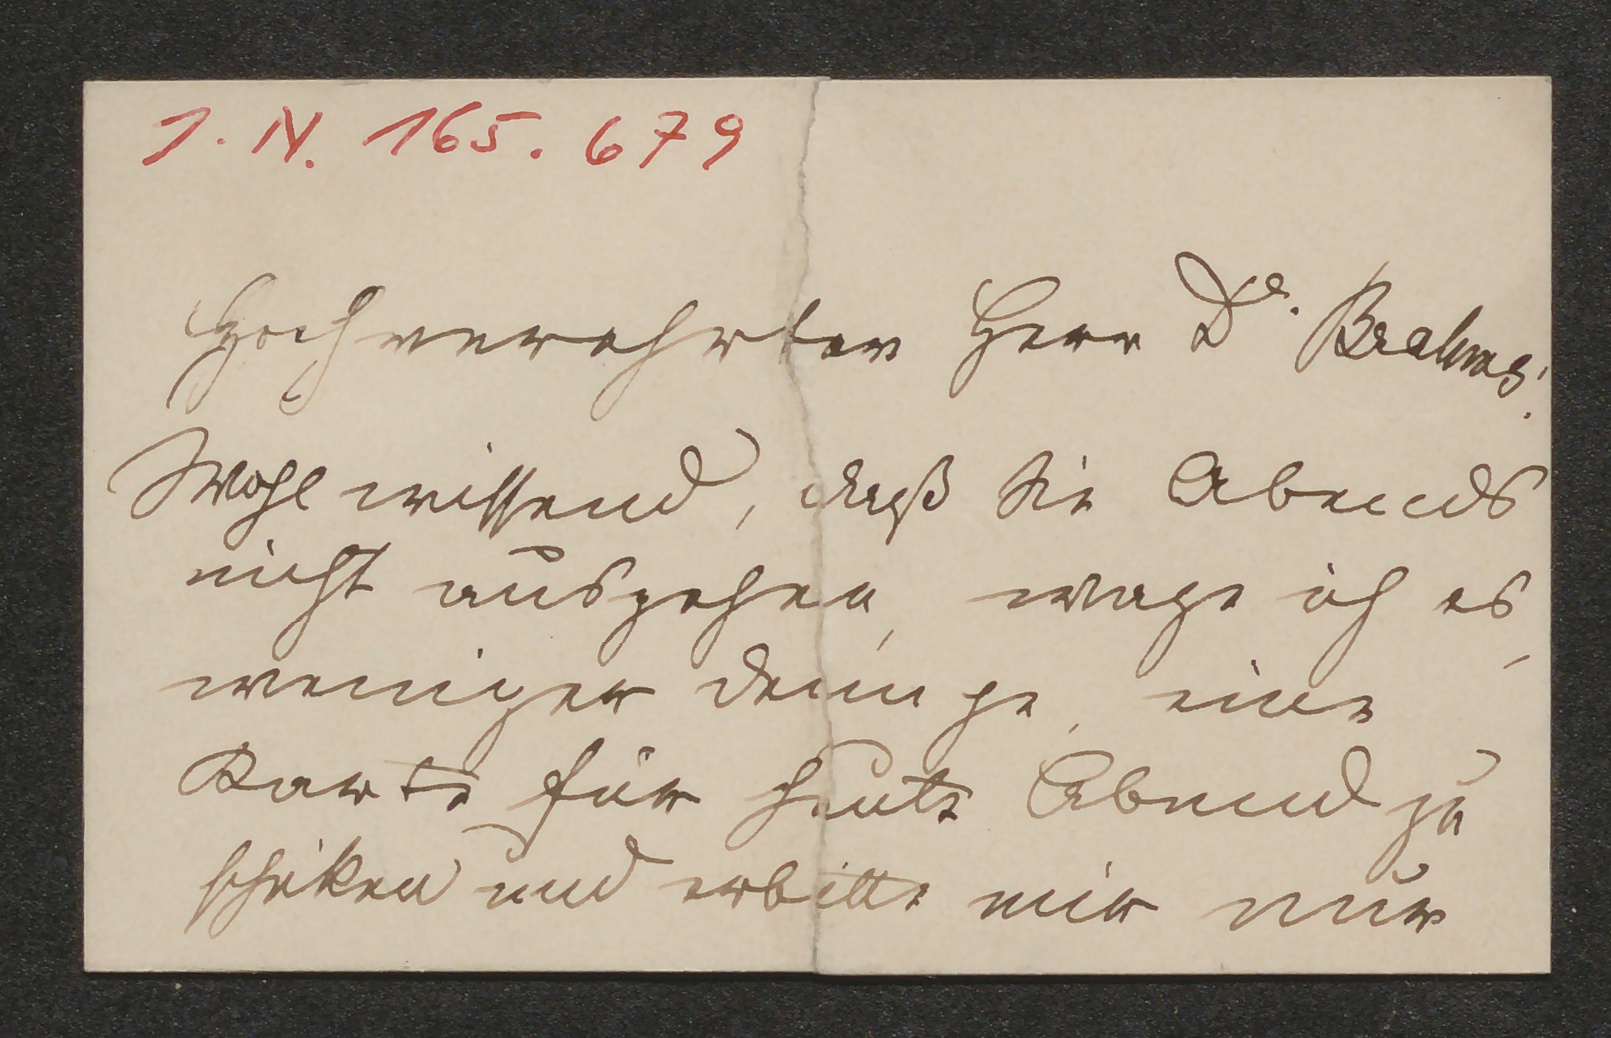 J. N. 165.679
Hochverehrter Herr Dr. Brahms!
Wohl wissend, daß Sie Abends
nicht ausgehen, wage ich es,
weniger denn je, eine
Karte für heute Abend zu
schiken und erbitte mir nur